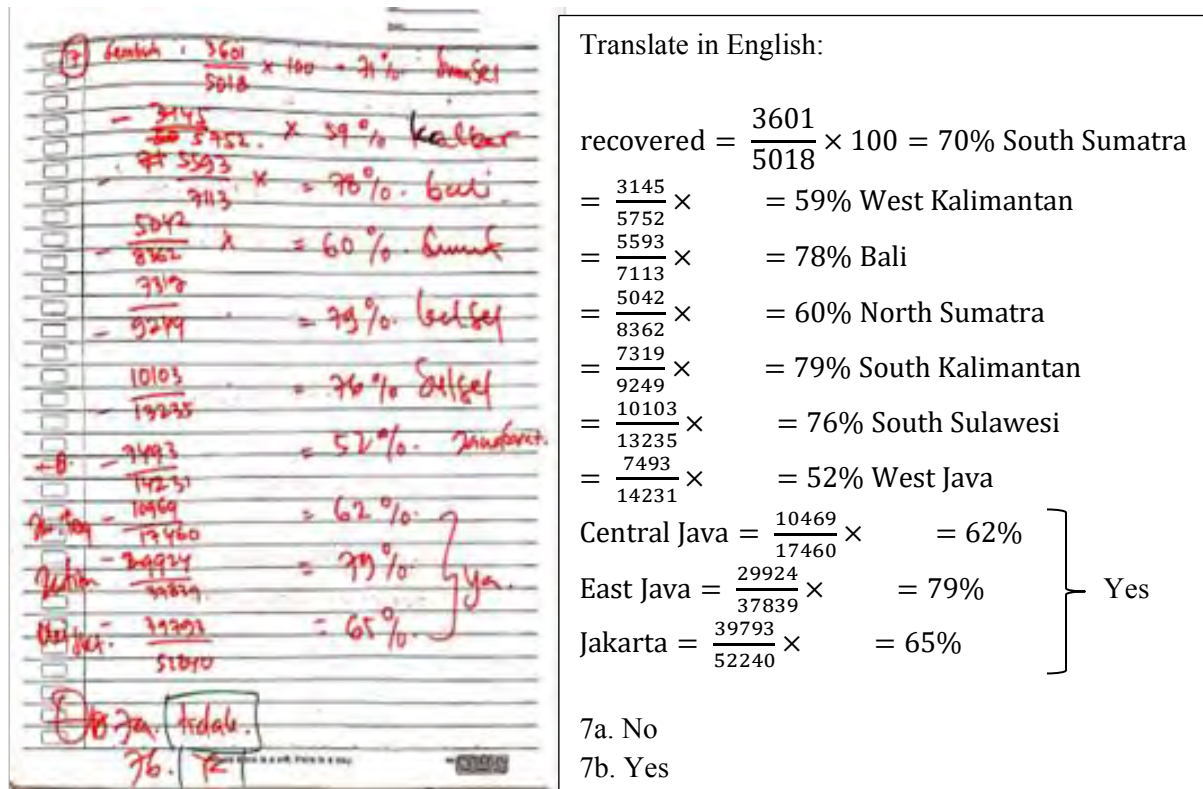 7 Sembuh : 3601/5018 × 100 = 71% Sumsel
- 3145/5752 × 59% kalbar
- 5593/7113 × = 78%. bali
- 5042/8362 × = 60%. Sumut
- 7319/9249 = 79%. kalsel
- 10103/13235 = 76% Sulsel
- 7493/14231 = 52%.
- 10469/17460 = 62%.
Jatim - 29924/37839 = 79%. ya.
- 39793/52240 = 65%.
7a. tidak.
7b. Ya
Translate in English:
recovered = 3601/5018 × 100 = 70% South Sumatra
= 3145/5752 × = 59% West Kalimantan
= 5593/7113 × = 78% Bali
= 5042/8362 × = 60% North Sumatra
= 7319/9249 × = 79% South Kalimantan
= 10103/13235 × = 76% South Sulawesi
= 7493/14231 × = 52% West Java
Central Java = 10469/17460 × = 62%
East Java = 29924/37839 × = 79% Yes
Jakarta = 39793/52240 × = 65%
7a. No
7b. Yes